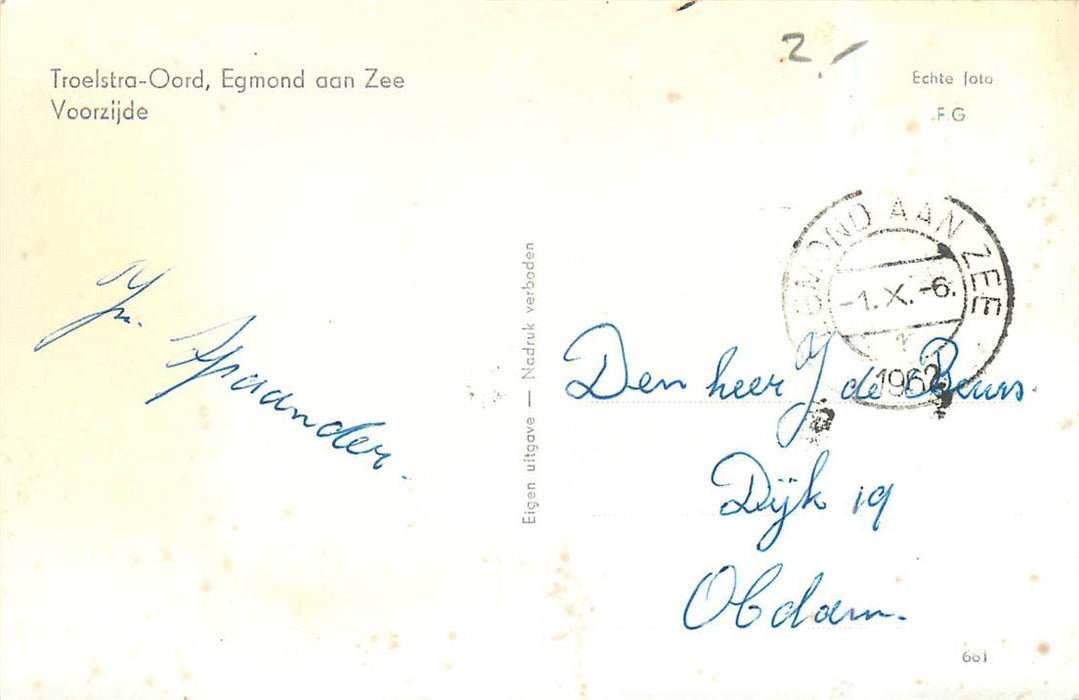 2,-
Troelstra-Oord, Egmond aan Zee
Voorzijde
Echte foto
F.G
EGMOND AAN ZEE
-1.X.-6.
1962
Eigen uitgave — Nadruk verboden
Spaander.
Den heer J de Beurs.
Dijk 19
Obdam.
661